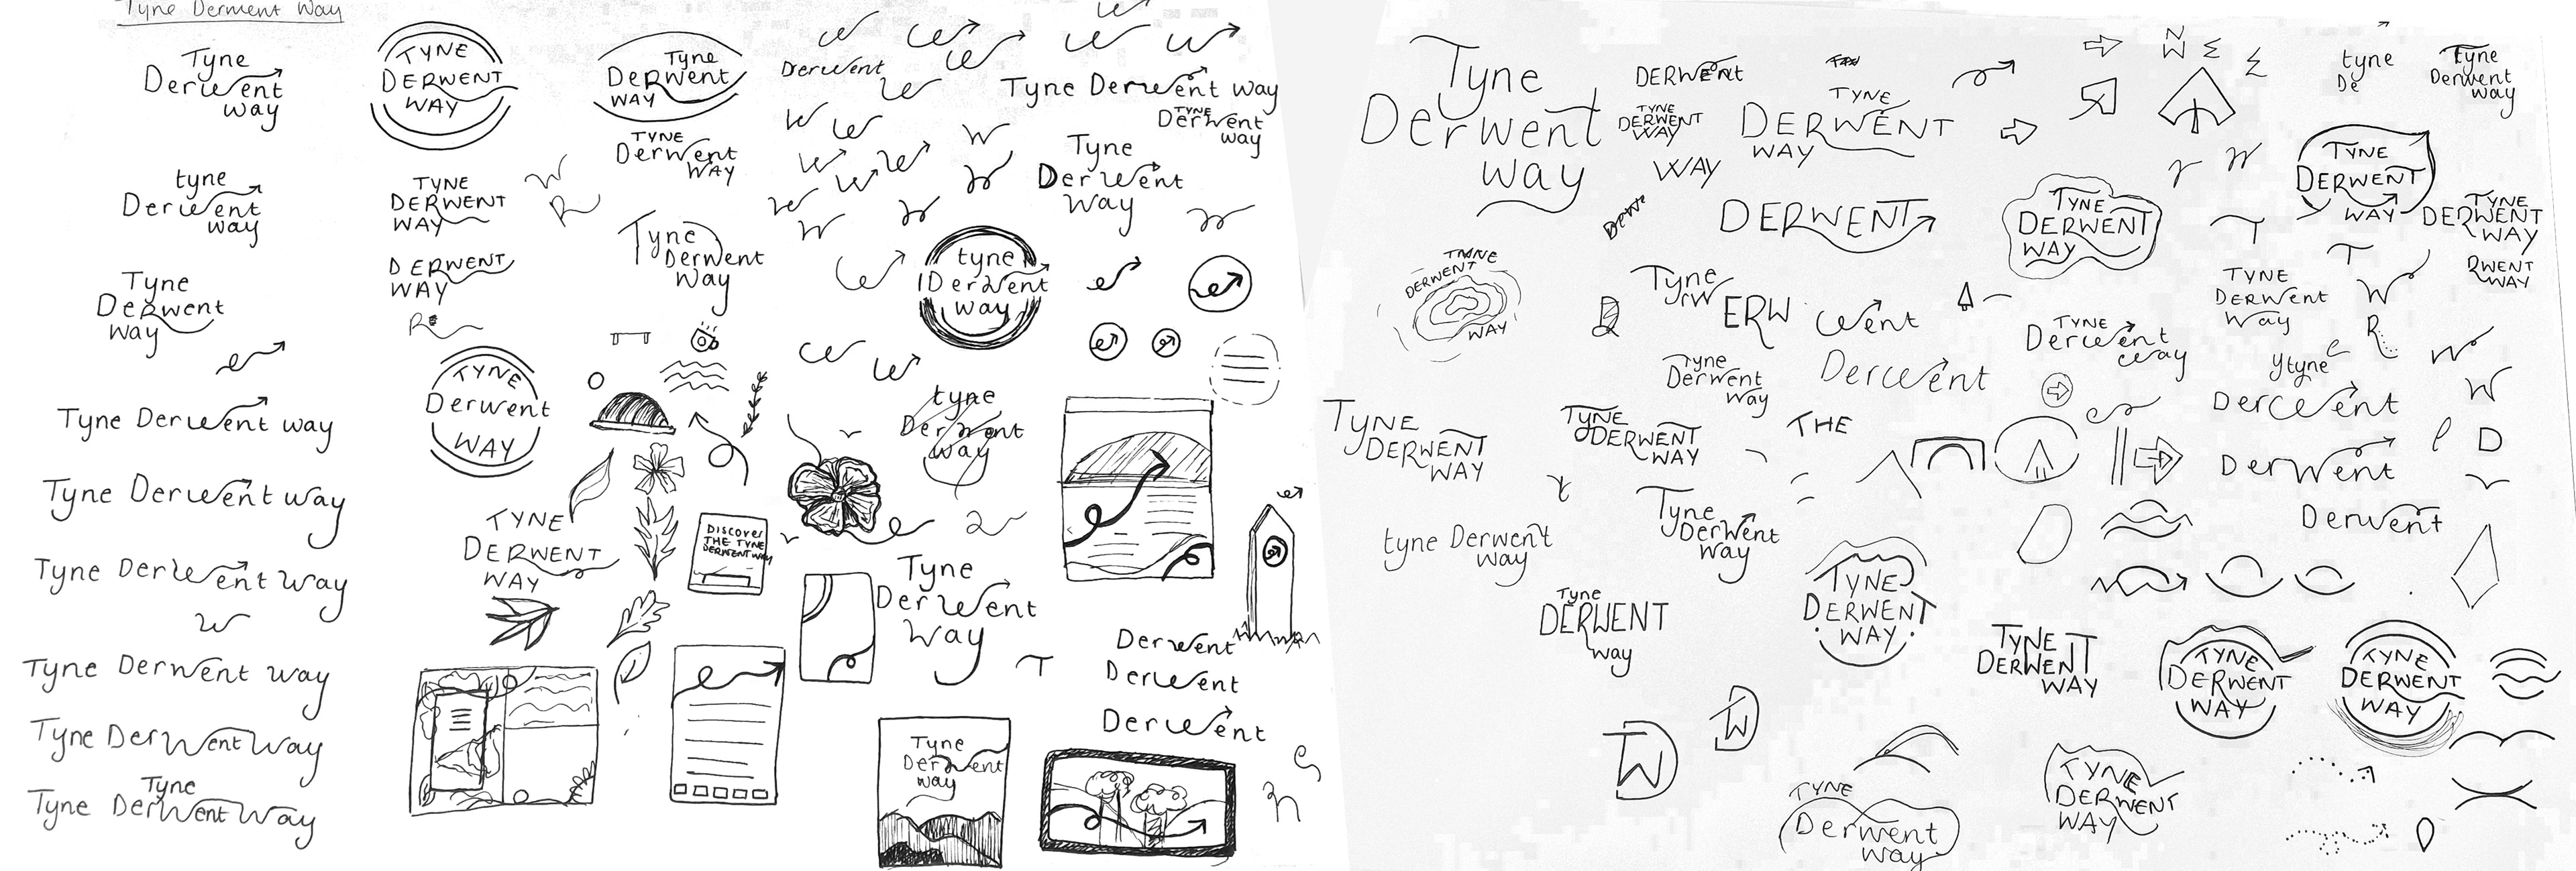 Tyne Derwent Way
Tyne
Derwent
way
tyne
Derwent
way
Tyne
Derwent
way
Tyne Derwent way
Tyne Derwent way
Tyne Derwent Way
W
Tyne Derwent way
Tyne Derwent Way
Tyne
Tyne Derwent Way
TYNE
DERWENT
WAY
TYNE
DERWENT
WAY
DERWENT
WAY
R
TYNE
Derwent
WAY
TYNE
DERWENT
WAY
W
R
Tyne
Derwent
WAY
TYNE
Derwent
WAY
Tyne
Derwent
Way
DISCOVER
THE TYNE
DERWENT WAY
Derwent
Tyne Derwent Way
TYNE
Derwent
way
Tyne
Derwent
Way
tyne
Derwent
way
tyne
Derwent
way
Tyne
Derwent
Way
Tyne
Derwent
way
Derwent
Derwent
Derwent
Tyne
Derwent
way
DERWENT
TYNE
DERWENT
WAY
WAY
TYNE
DERWENT
WAY
DERWENT
TYNE
DERWENT
WAY
Tyne
rW
ERW
Went
Tyne
Derwent
Way
Derwent
TYNE
DERWENT
WAY
TYNE
DERWENT
WAY
THE
tyne Derwent
way
Tyne
Derwent
way
Tyne
DERWENT
way
TYNE
DERWENT
WAY
TW
TYNE
Derwent
way
N
W
tyne
De
tyne
Derwent
way
TYNE
DERWENT
WAY
TYNE
DERWENT
WAY
TYNE
DERWENT
WAY
RWENT
WAY
T
T
TYNE
DERWENT
Way
W
R
TYNE
Derwent
way
ytyne
Derwent
W
D
Derwent
Derwent
TYNE
DERWENT
WAY
TYNE
DERWENT
WAY
TYNE
DERWENT
WAY
TYNE
DERWENT
WAY